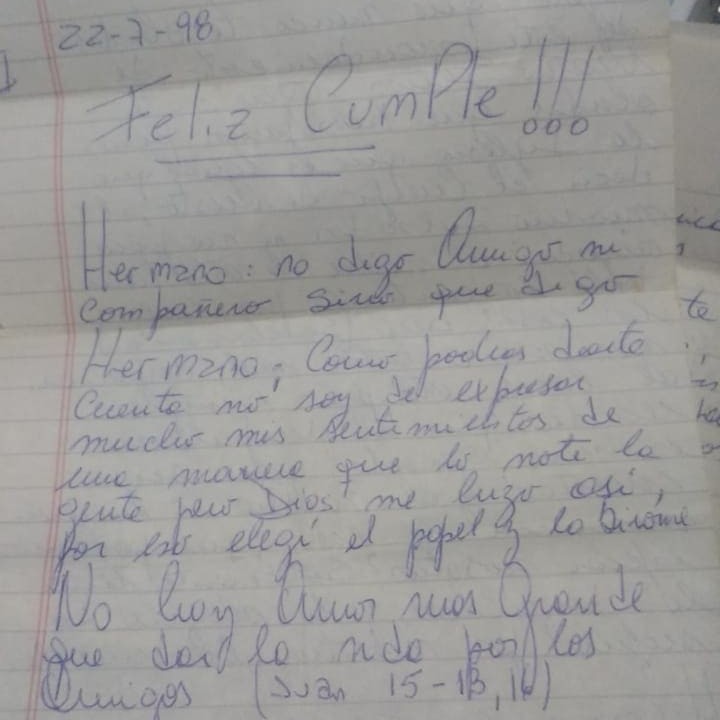 22-7-98
Feliz Cumple!!!
Hermano: no digo Amigo ni
compañero sino que digo
Hermano; Como podras darte
cuenta no soy de expresar
mucho mis sentimientos de
una manera que lo note la
gente pero Dios me hizo asi,
por eso elegí el papel y la birome
No hay Amor mas Grande
que dar la vida por los
Amigos (Juan 15-13,16)
te